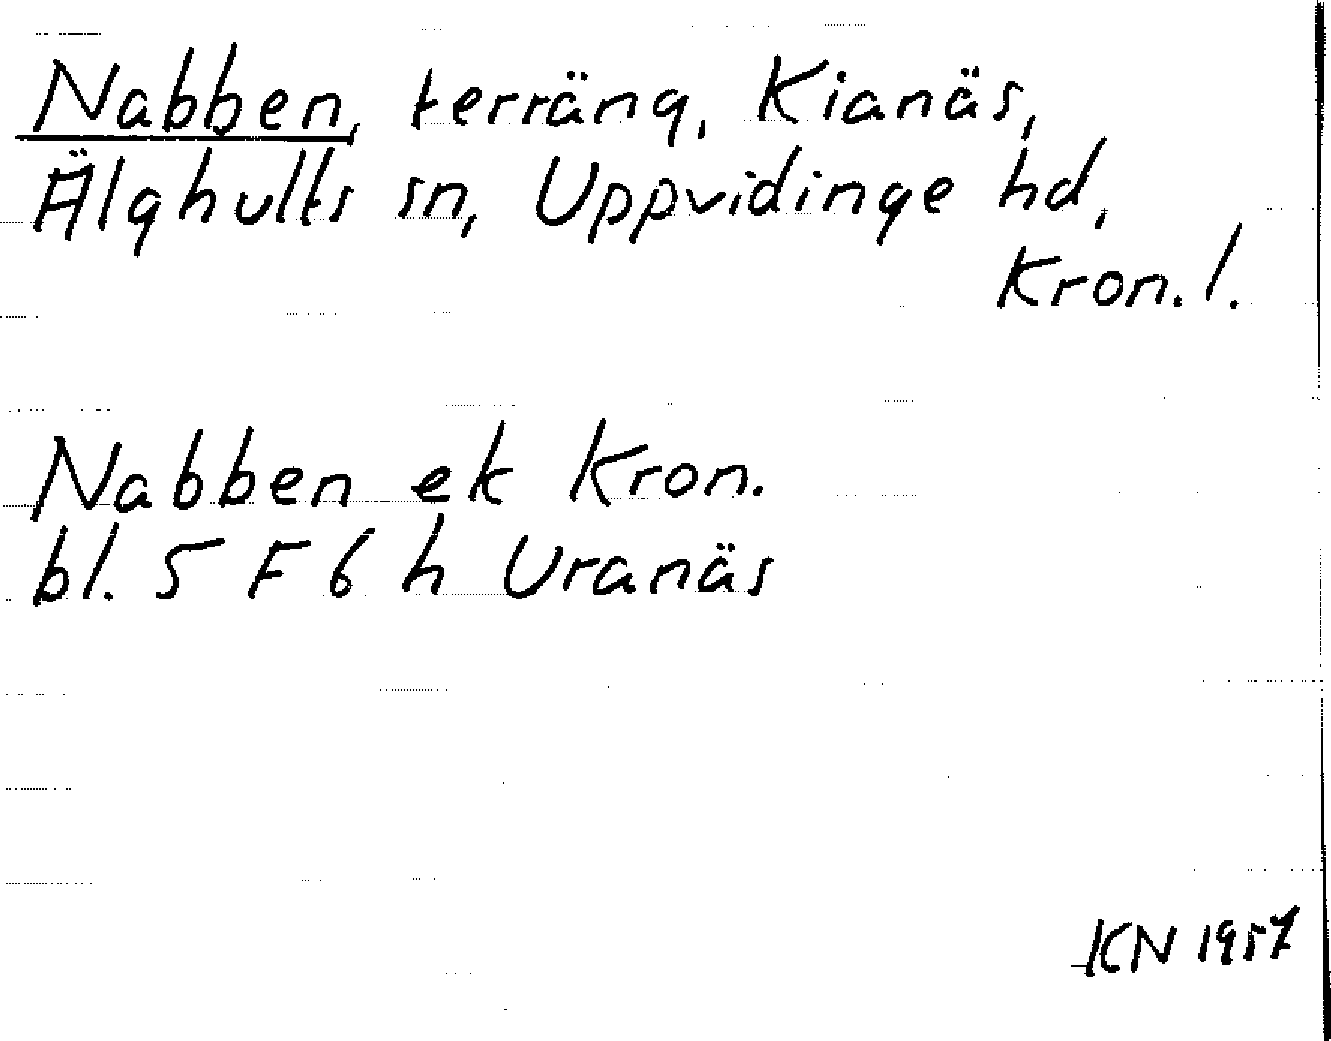 Nabben, terräng, Kianäs,
Älghults sn, Uppvidinge hd,
Kron. l.
Nabben ek Kron.
bl. 5 F 6 h Uranäs
KN 1957